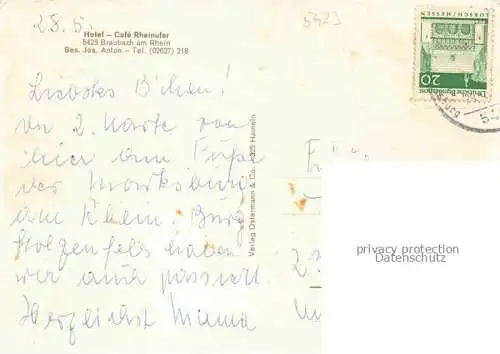 28.5.
5423
Hotel – Café Rheinufer
5423 Braubach am Rhein
Bes. Jos. Anton – Tel. (02627) 218
Liebstes
die 2. Karte von
hier am Fuße
der Marksburg
am Rhein. Burg
Stolzenfels haben
wir auch passiert.
Herzlichst Mama
Verlag Ostermann & Co. 325 Hameln
LORSCH/HESSEN
20
Deutsche Bundespost
privacy protection
Datenschutz